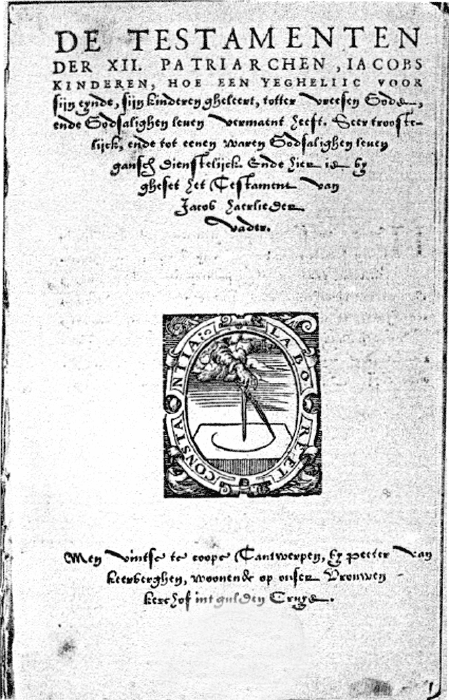 DE TESTAMENTEN
DER XII. PATRIARCHEN, IACOBS
KINDEREN, HOE EEN YEGHELIIC VOOR
sijn eynde, sijn kinderen gheleert, totter vreesen Gods,
ende Godsalighen leven vermaent heeft. Seer trooste-
lijck, ende tot eenen waren Godsalighen leven
gansch dienstelijck. Ende hier is by
gheset het Testament van
Jacob haerlieder
vader.
LABORE ET CONSTANTIA
Men vintse te coope Tantwerpen, by Peeter van
Keerberghen, woonende op onser Vrouwen
kerchof int gulden Cruys.